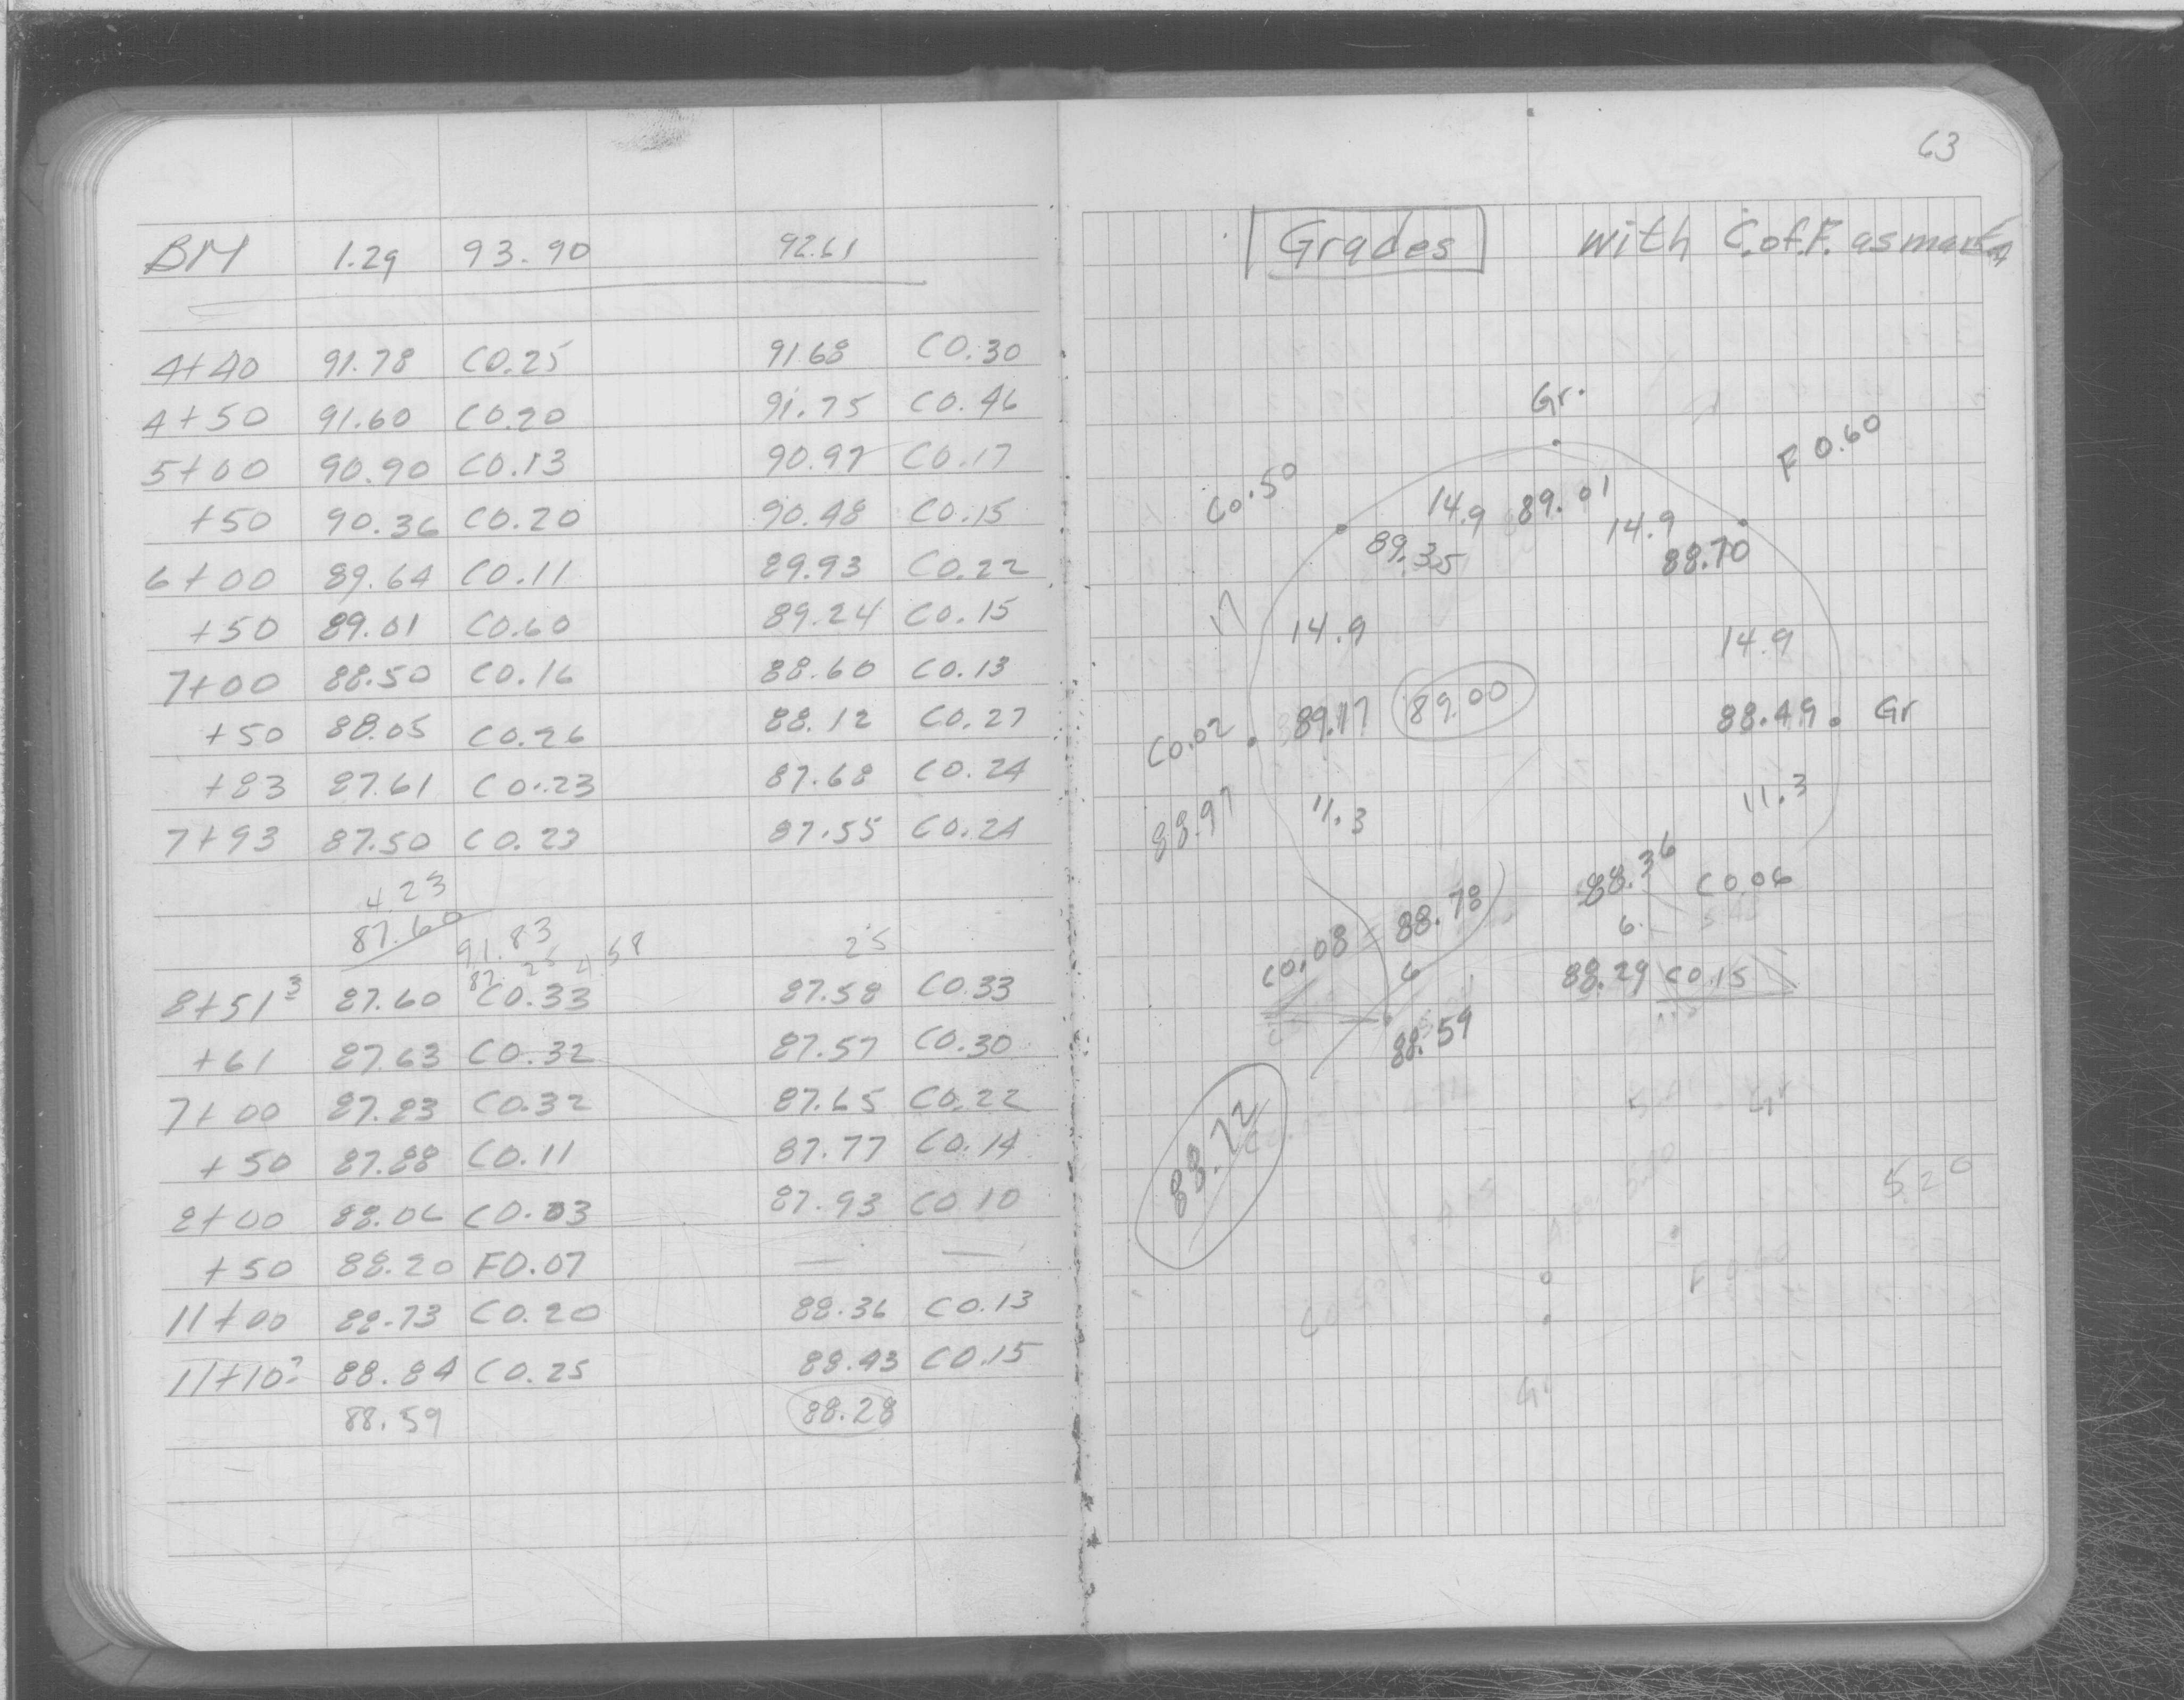 BM 1.29 93.90 92.61
4+40 91.78 C0.25 91.68 C0.30
4+50 91.60 C0.20 91.75 C0.46
5+00 90.90 C0.13 90.97 C0.17
+50 90.36 C0.20 90.48 C0.15
6+00 89.64 C0.11 89.93 C0.22
+50 89.01 C0.60 89.24 C0.15
7+00 88.50 C0.16 88.60 C0.13
+50 88.05 C0.26 88.12 C0.27
+83 87.61 C0.23 87.68 C0.24
7+93 87.50 C0.23 87.55 C0.24
4 23
87.60 91.83
87.25 4.58 25
8+51³ 87.60 C0.33 87.58 C0.33
+61 87.63 C0.32 87.57 C0.30
7+00 87.83 C0.32 87.65 C0.22
+50 87.88 C0.11 87.77 C0.14
8+00 88.06 C0.03 87.93 C0.10
+50 88.20 F0.07 — —
11+00 88.73 C0.20 88.36 C0.13
11+10² 88.84 C0.25 88.43 C0.15
88.59 88.28
63
Grades with C.or.F. as marked
Gr.
C0.50 F 0.60
14.9 89.01 14.9
89.35 88.70
17 14.9 14.9
C0.02 89.17 89.00 88.49 Gr
88.97 11.3 11.3
88.36 C0.06
C0.08 88.78 6.
6 88.29 C0.15
88.59
88.72
5.20